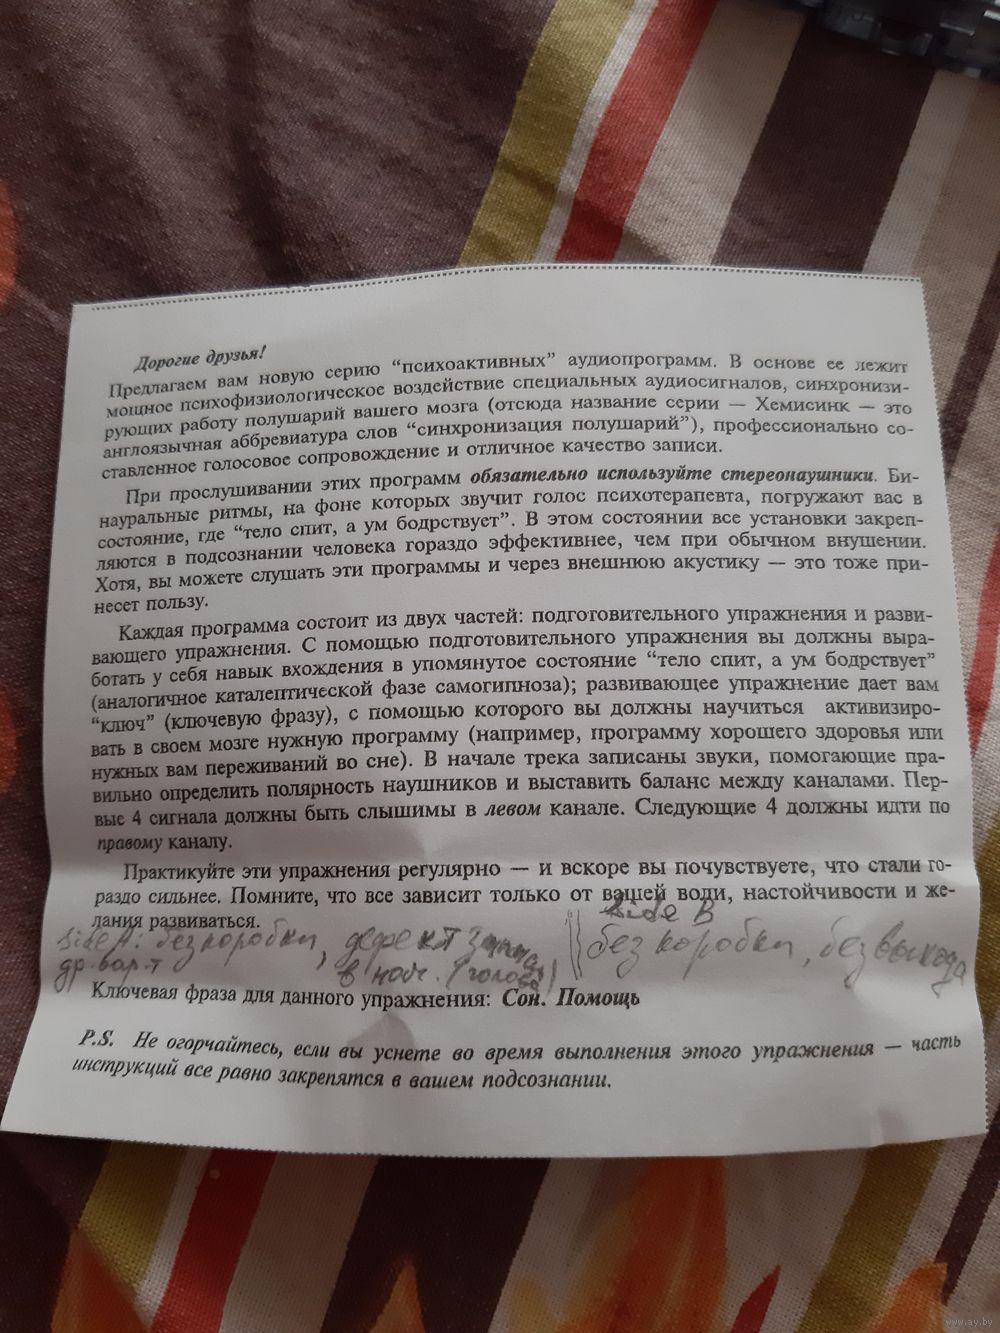 Дорогие друзья!
Предлагаем вам новую серию “психоактивных” аудиопрограмм. В основе ее лежит
мощное психофизиологическое воздействие специальных аудиосигналов, синхронизи-
рующих работу полушарий вашего мозга (отсюда название серии — Хемисинк — это
англоязычная аббревиатура слов “синхронизация полушарий”), профессионально со-
ставленное голосовое сопровождение и отличное качество записи.
При прослушивании этих программ обязательно используйте стереонаушники. Би-
науральные ритмы, на фоне которых звучит голос психотерапевта, погружают вас в
состояние, где “тело спит, а ум бодрствует”. В этом состоянии все установки закреп-
ляются в подсознании человека гораздо эффективнее, чем при обычном внушении.
Хотя, вы можете слушать эти программы и через внешнюю акустику — это тоже при-
несет пользу.
Каждая программа состоит из двух частей: подготовительного упражнения и разви-
вающего упражнения. С помощью подготовительного упражнения вы должны выра-
ботать у себя навык вхождения в упомянутое состояние “тело спит, а ум бодрствует”
(аналогичное каталептической фазе самогипноза); развивающее упражнение дает вам
“ключ” (ключевую фразу), с помощью которого вы должны научиться активизиро-
вать в своем мозге нужную программу (например, программу хорошего здоровья или
нужных вам переживаний во сне). В начале трека записаны звуки, помогающие пра-
вильно определить полярность наушников и выставить баланс между каналами. Пер-
вые 4 сигнала должны быть слышимы в левом канале. Следующие 4 должны идти по
правому каналу.
Практикуйте эти упражнения регулярно — и вскоре вы почувствуете, что стали го-
раздо сильнее. Помните, что все зависит только от вашей воли, настойчивости и же-
лания развиваться.
Side B
Side A: без коробки, дефект записи без коробки, без выхода
др. вар-т в нач. (голова)
Ключевая фраза для данного упражнения: Сон. Помощь
P.S. Не огорчайтесь, если вы уснете во время выполнения этого упражнения — часть
инструкций все равно закрепятся в вашем подсознании.
www.ay.by